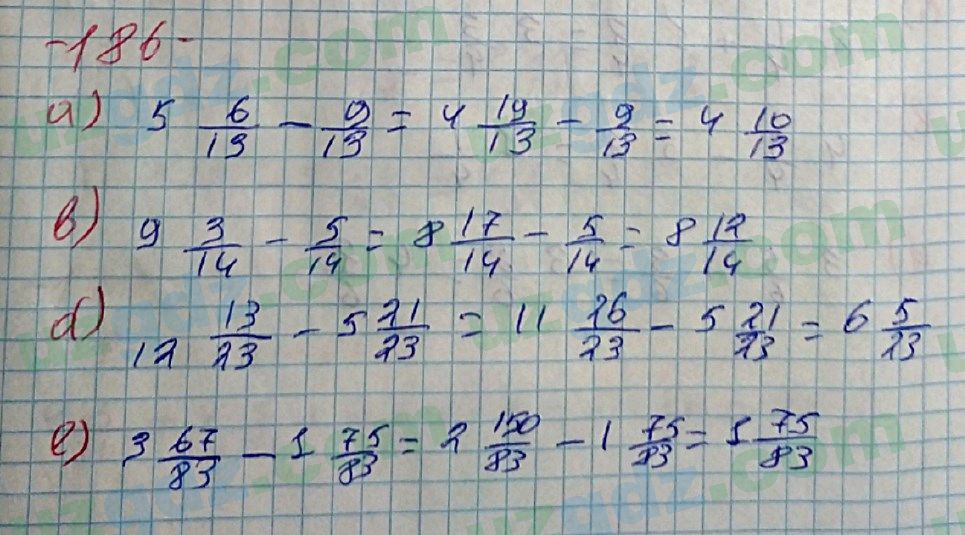 -186-
a) 5 6/13 - 9/13 = 4 19/13 - 9/13 = 4 10/13
b) 9 3/14 - 5/14 = 8 17/14 - 5/14 = 8 12/14
d) 12 13/23 - 5 21/23 = 11 26/23 - 5 21/23 = 6 5/23
e) 3 67/83 - 1 75/83 = 2 150/83 - 1 75/83 = 1 75/83